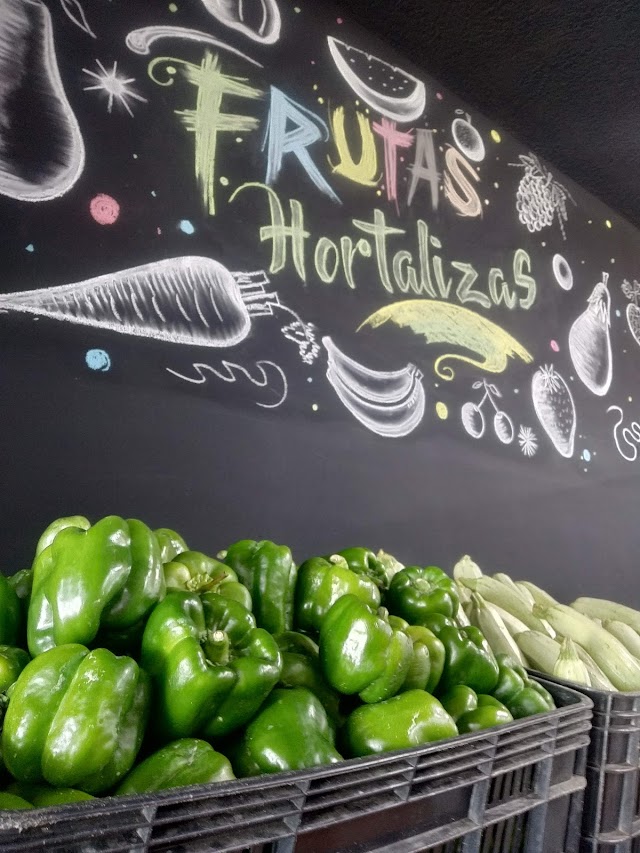 FRUTAS
Hortalizas